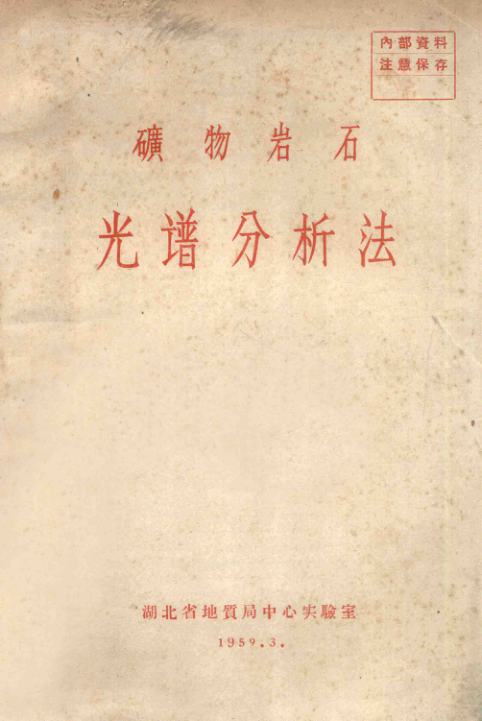 內部資料
注意保存
礦物岩石
光谱分析法
湖北省地質局中心实驗室
1959.3.